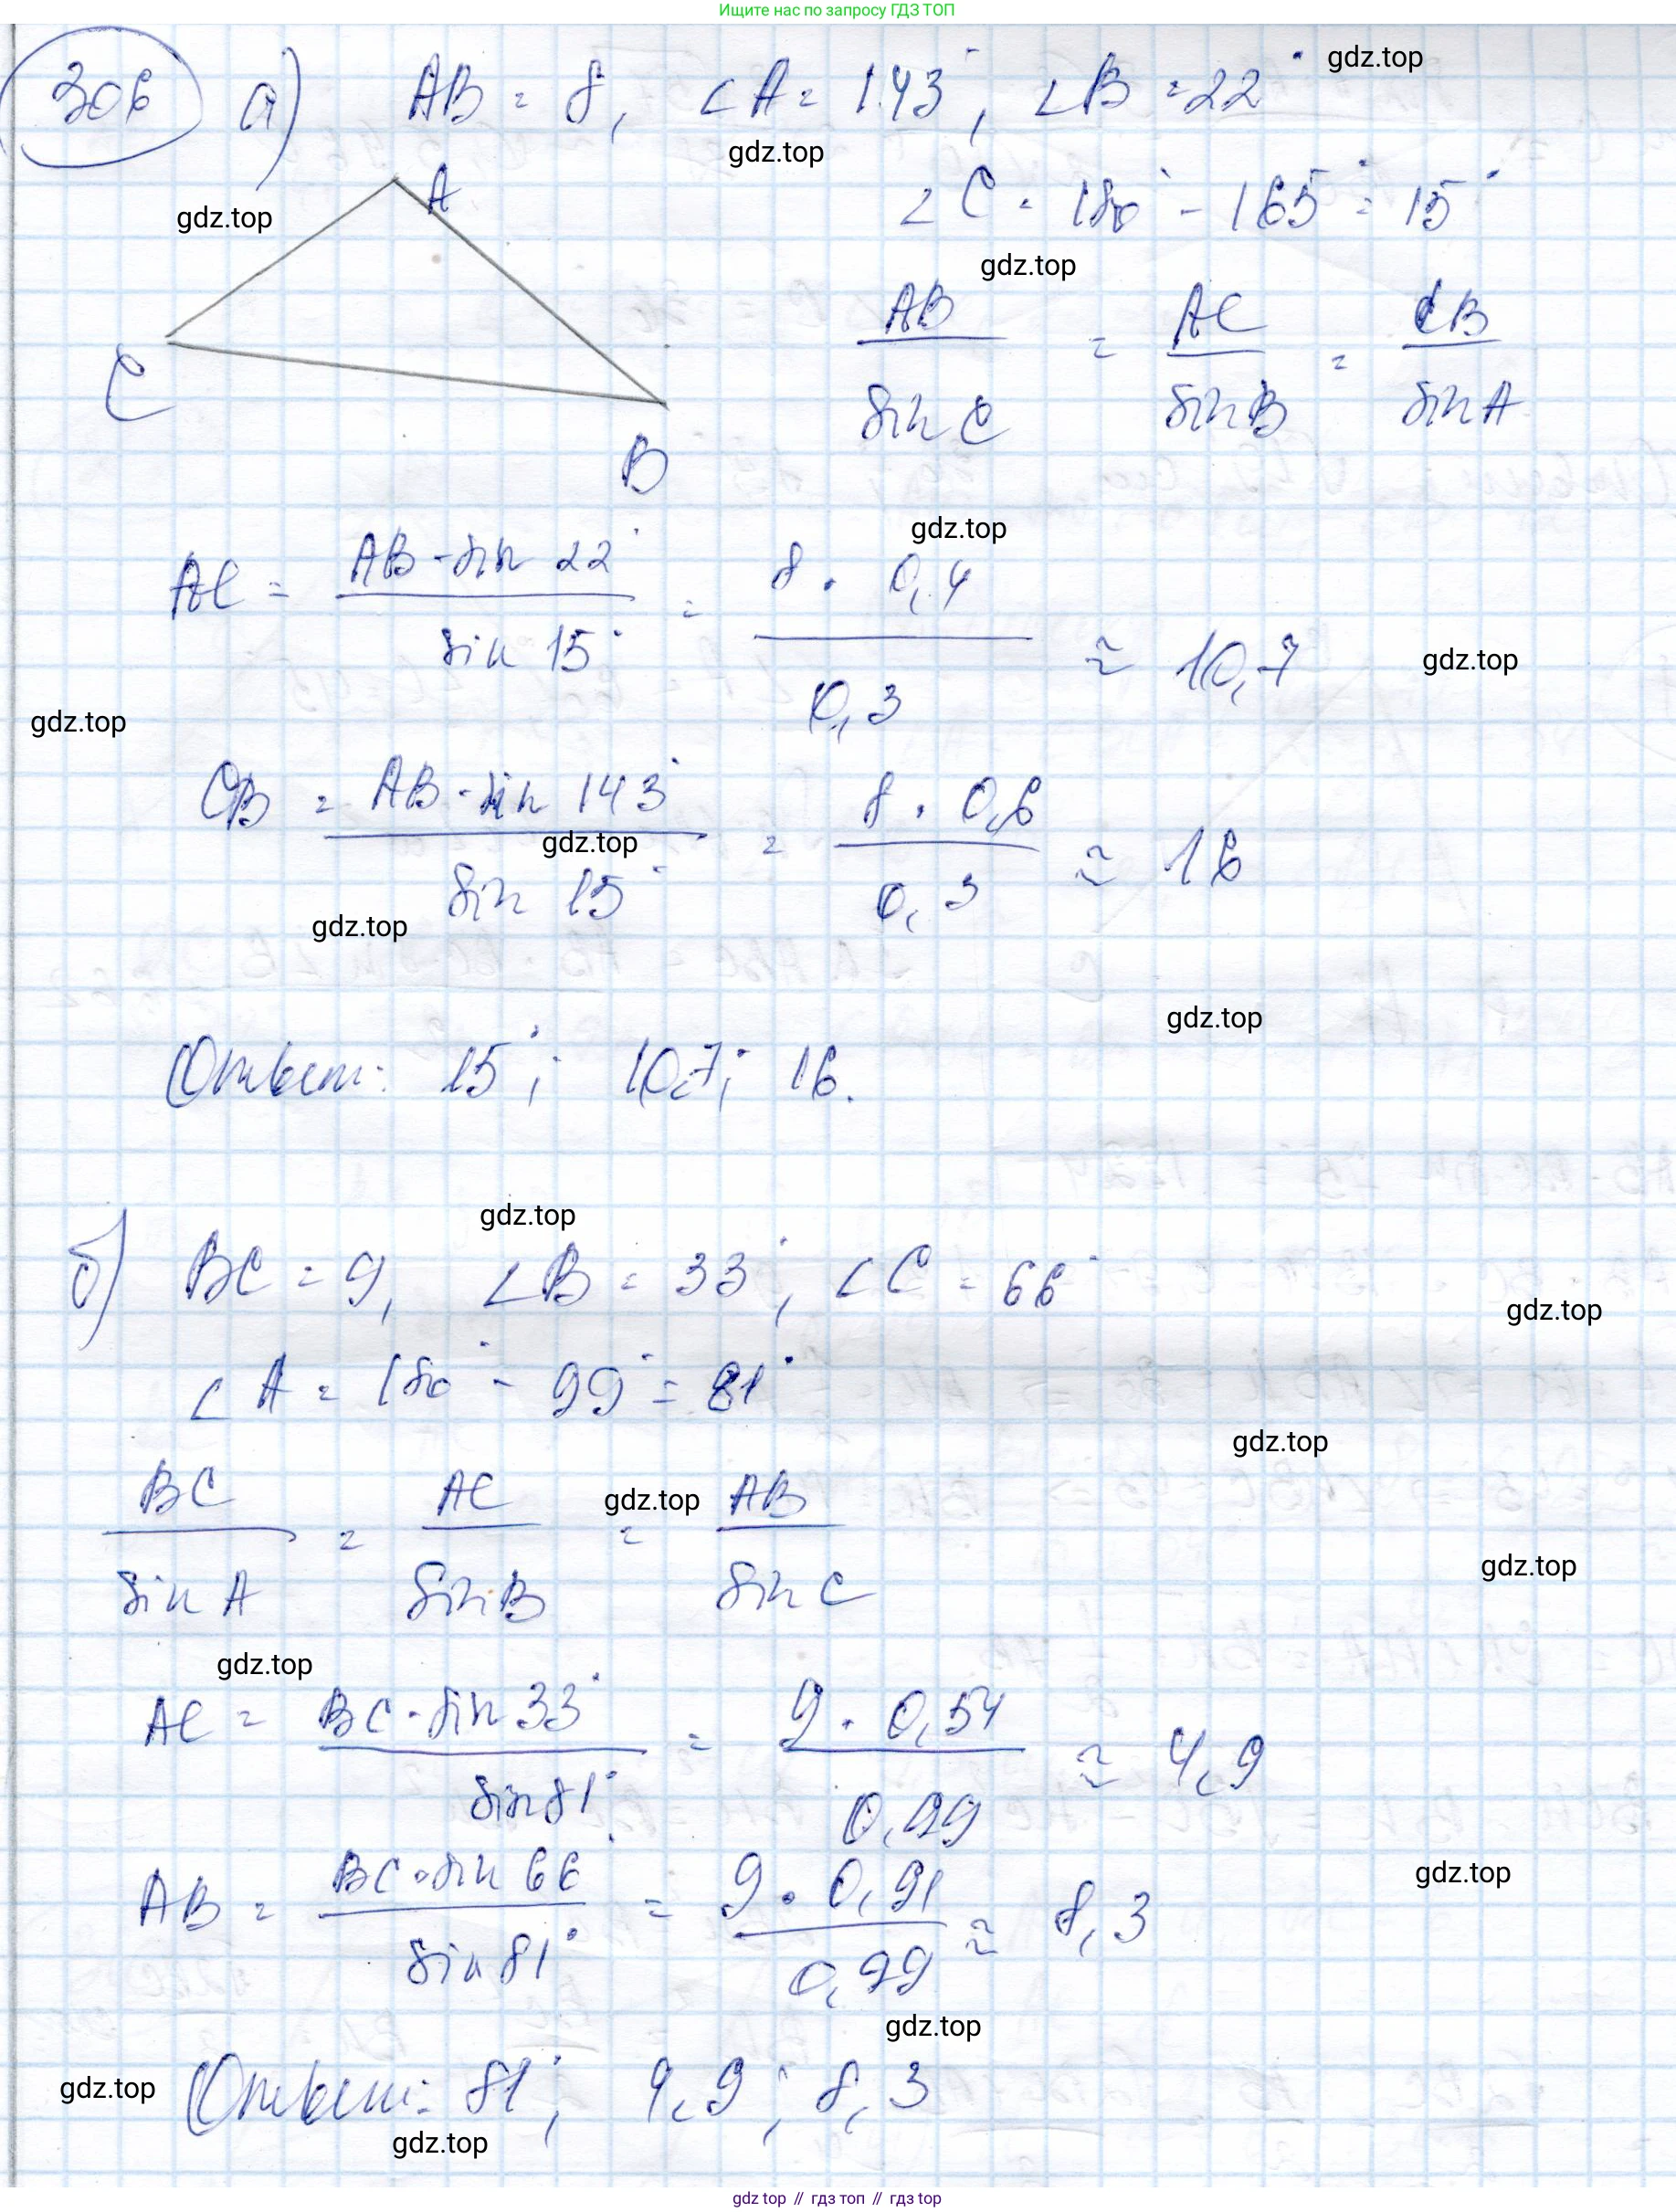 Ищите нас по запросу ГДЗ ТОП
306 а) AB = 8, ∠A = 143°, ∠B = 22°
gdz.top
gdz.top
∠C = 180° - 165° = 15°
A
gdz.top
gdz.top
AB/sin C = AC/sin B = CB/sin A
C
B
gdz.top
AC = AB · sin 22°/sin 15° = 8 · 0,4/0,3 ≈ 10,7
gdz.top
gdz.top
CB = AB · sin 143°/sin 15° = 8 · 0,6/0,3 ≈ 16
gdz.top
gdz.top
gdz.top
Ответ: 15°; 10,7; 16.
gdz.top
б) BC = 9, ∠B = 33°, ∠C = 66°
gdz.top
∠A = 180° - 99° = 81°
gdz.top
BC/sin A = AC/sin B = AB/sin C
gdz.top
gdz.top
gdz.top
AC = BC · sin 33°/sin 81° = 9 · 0,54/0,99 ≈ 4,9
AB = BC · sin 66°/sin 81° = 9 · 0,91/0,99 ≈ 8,3
gdz.top
gdz.top
gdz.top
Ответ: 81°; 4,9; 8,3
gdz.top
gdz top // гдз топ // гдз top